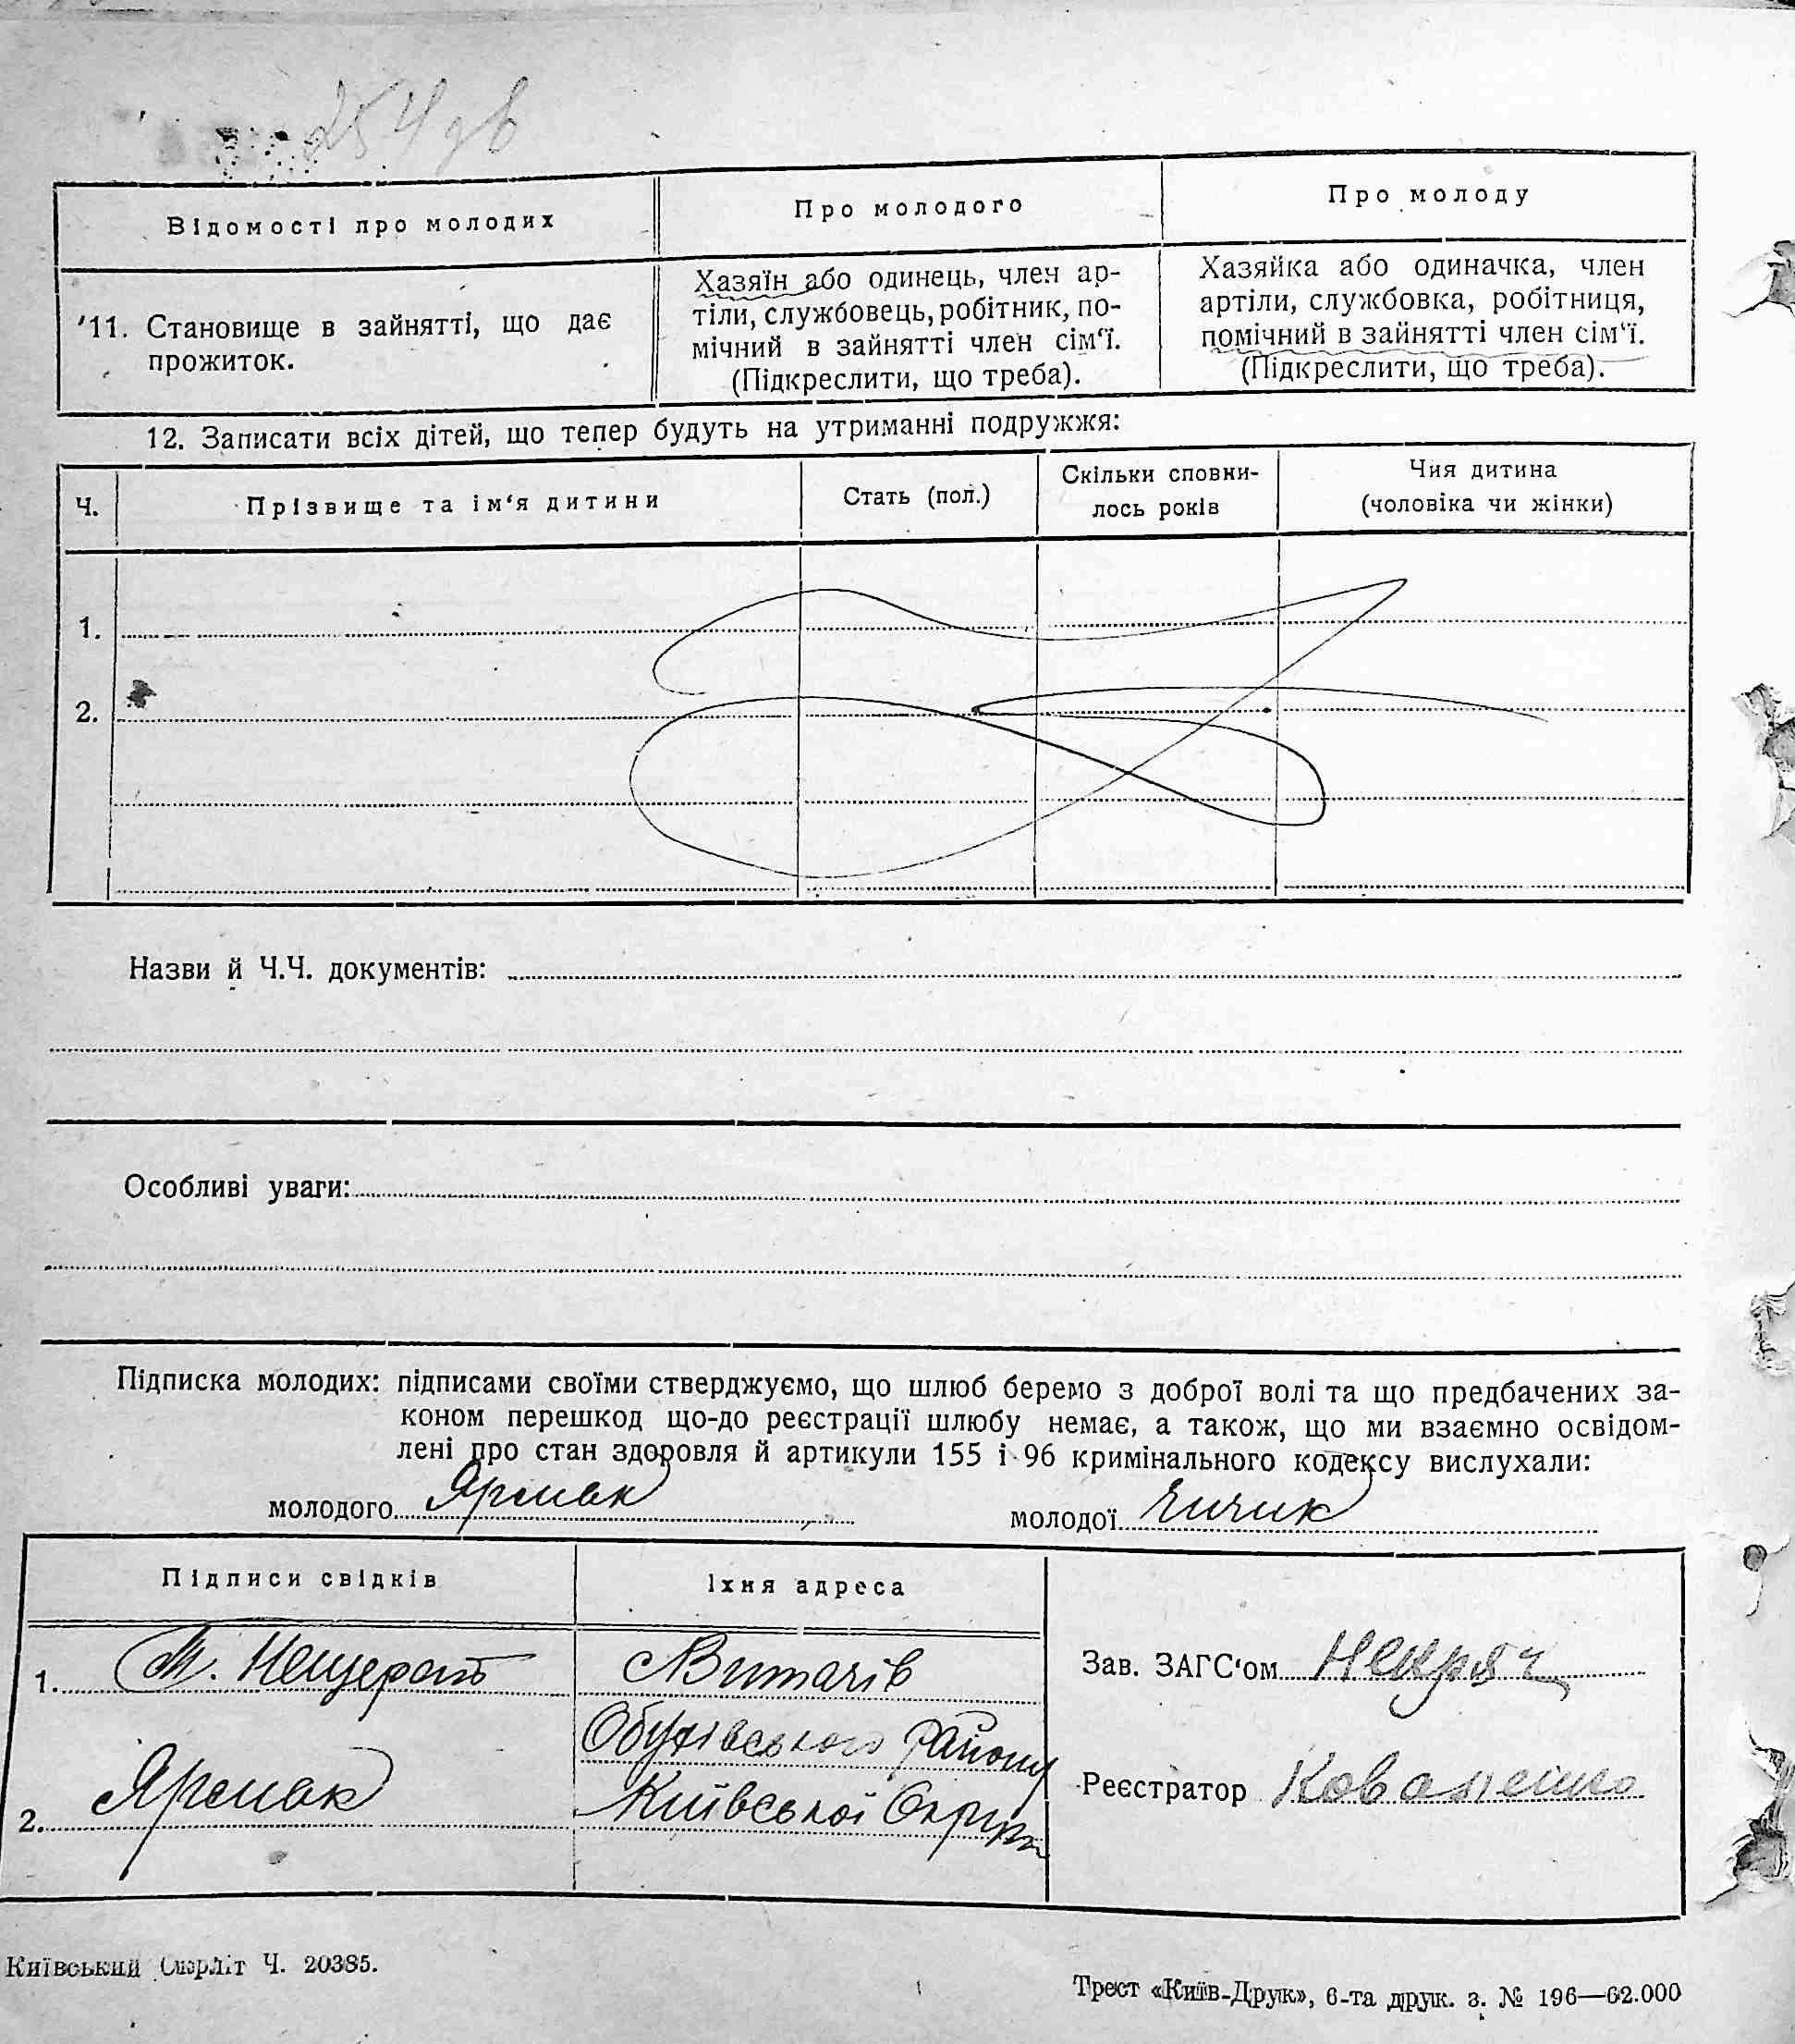 254 зв
Відомості про молодих
Про молодого
Про молоду
11. Становище в зайнятті, що дає
прожиток.
Хазяїн або одинець, член ар-
тіли, службовець, робітник, по-
мічний в зайнятті член сім‘ї.
(Підкреслити, що треба).
Хазяйка або одиначка, член
артіли, службовка, робітниця,
помічний в зайнятті член сім‘ї.
(Підкреслити, що треба).
12. Записати всіх дітей, що тепер будуть на утриманні подружжя:
Ч.
Прізвище та ім‘я дитини
Стать (пол.)
Скільки сповни-
лось років
Чия дитина
(чоловіка чи жінки)
1.
2.
Назви й Ч.Ч. документів:
Особливі уваги:
Підписка молодих: підписами своїми стверджуємо, що шлюб беремо з доброї волі та що предбачених за-
коном перешкод що-до реєстрації шлюбу немає, а також, що ми взаємно освідом-
лені про стан здоровля й артикули 155 і 96 кримінального кодексу вислухали:
молодого Ярмак молодої Чичик
Підписи свідків
Їхня адреса
1. М. Нещерет
Витачів
Обухівського району
Київської Округи
2. Ярмак
Зав. ЗАГС‘ом Некряч
Реєстратор Коваленко
Київський Окрліт Ч. 20385.
Трест «Київ-Друк», 6-та друк. з. № 196—62.000